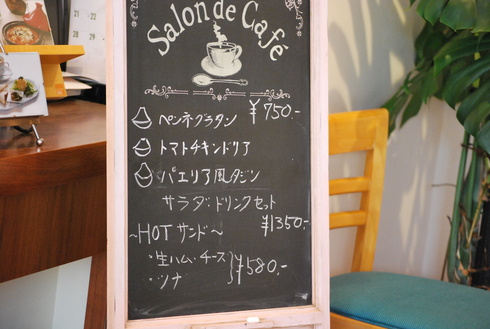 Salon de Café
ペンネグラタン ¥750.-
トマトチキンドリア
パエリア風タジン
サラダ・ドリンクセット
¥1350.-
~HOTサンド~
・生ハム・チーズ
・ツナ
¥580.-